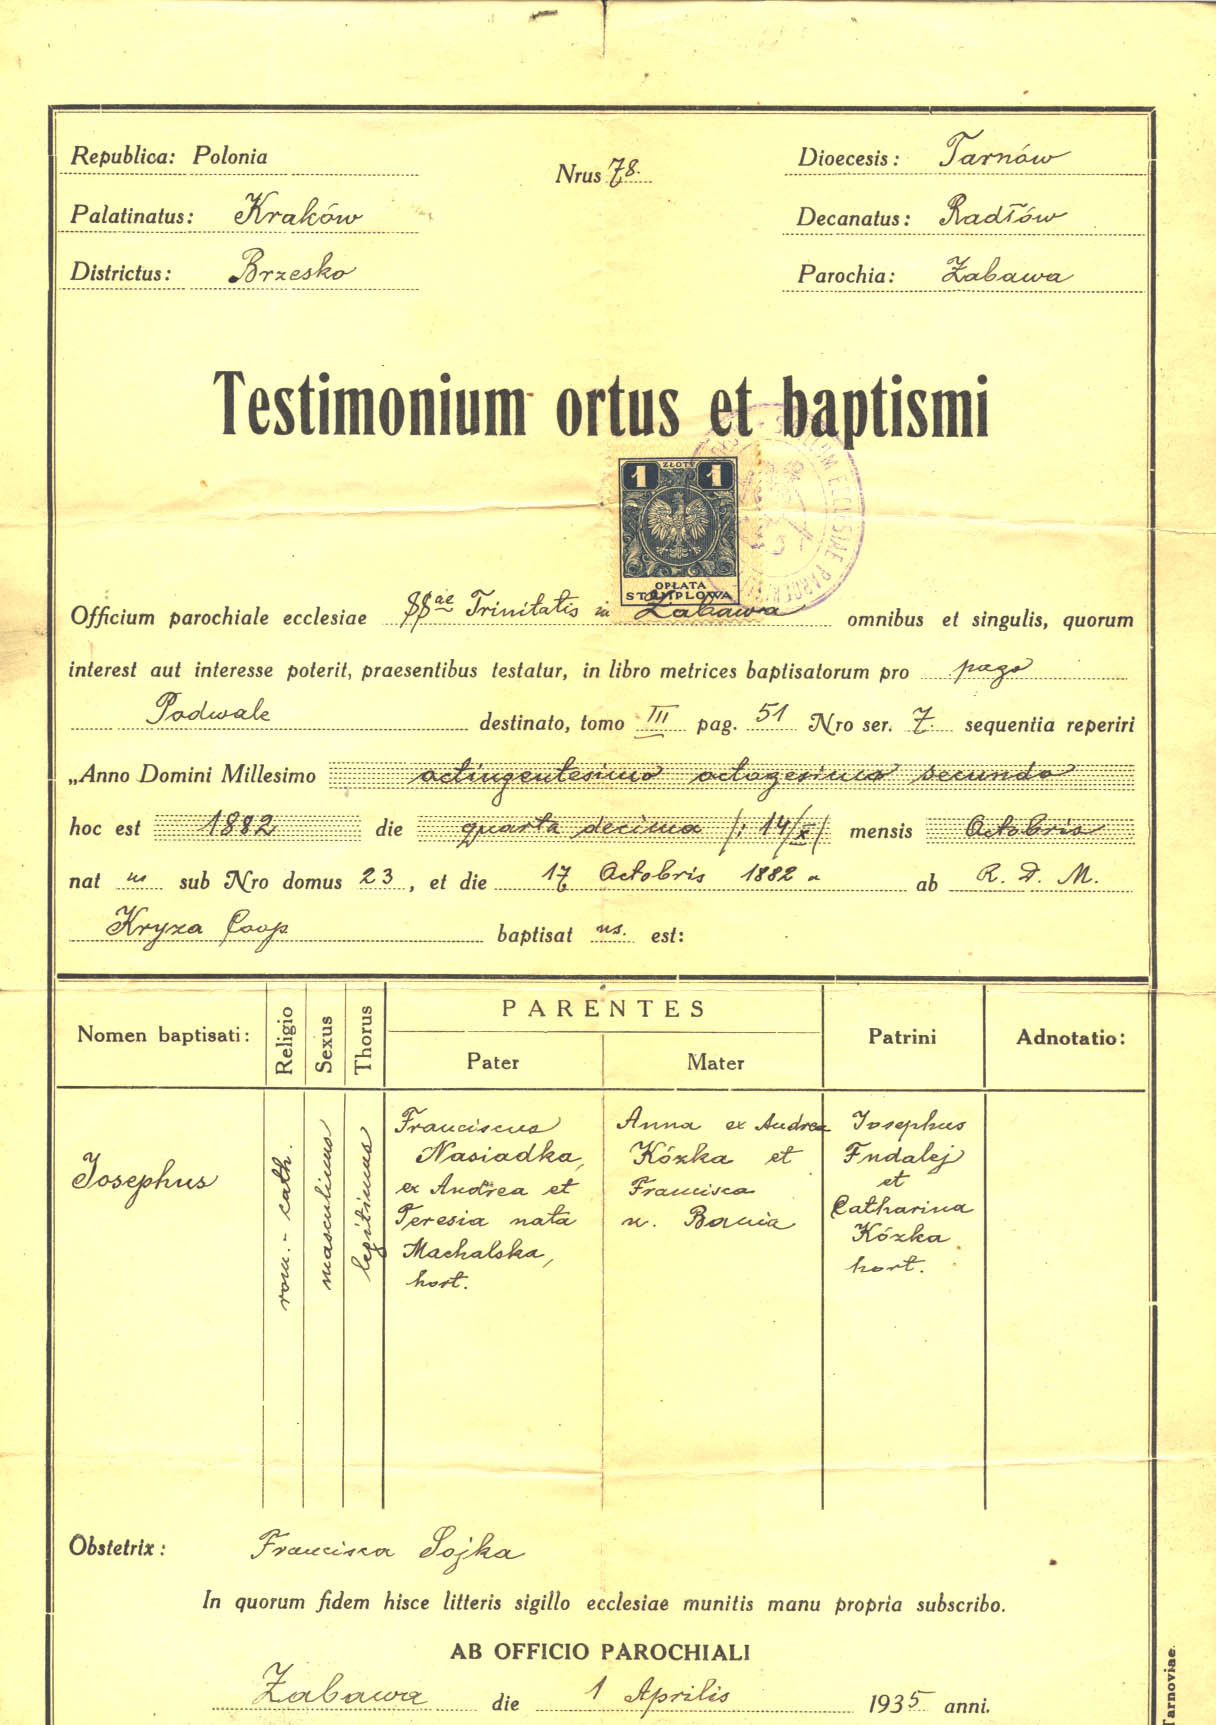 Republica: Polonia
Nrus 78.
Dioecesis: Tarnów
Palatinatus: Kraków
Decanatus: Radłów
Districtus: Brzesko
Parochia: Zabawa
Testimonium ortus et baptismi
1 ZŁOTY 1
OPŁATA
STEMPLOWA
SIGILLUM ECCLESIAE
Officium parochiale ecclesiae SSae Trinitatis in Zabawa omnibus et singulis, quorum
interest aut interesse poterit, praesentibus testatur, in libro metrices baptisatorum pro pago
Podwale destinato, tomo III pag. 51 Nro ser. 7. sequentia reperiri
„Anno Domini Millesimo octingentesimo octogesimo secundo
hoc est 1882 die quarta decima /: 14/X / mensis Octobris
nat us sub Nro domus 23, et die 17 Octobris 1882 ab R. D. M.
Kryza Coop baptisat us. est:
Nomen baptisati:
Religio
Sexus
Thorus
PARENTES
Pater
Mater
Patrini
Adnotatio:
Josephus
rom.-cath.
masculinus
legitimus
Franciscus
Nasiadka,
ex Andrea et
Teresia nata
Machalska,
hort.
Anna ex Andrea
Kózka et
Francisca
n. Bania
Josephus
Fndalej
et
Catharina
Kózka
hort.
Obstetrix: Francisca Sojka
In quorum fidem hisce litteris sigillo ecclesiae munitis manu propria subscribo.
AB OFFICIO PAROCHIALI
Zabawa die 1 Aprilis 1935 anni.
Tarnoviae.